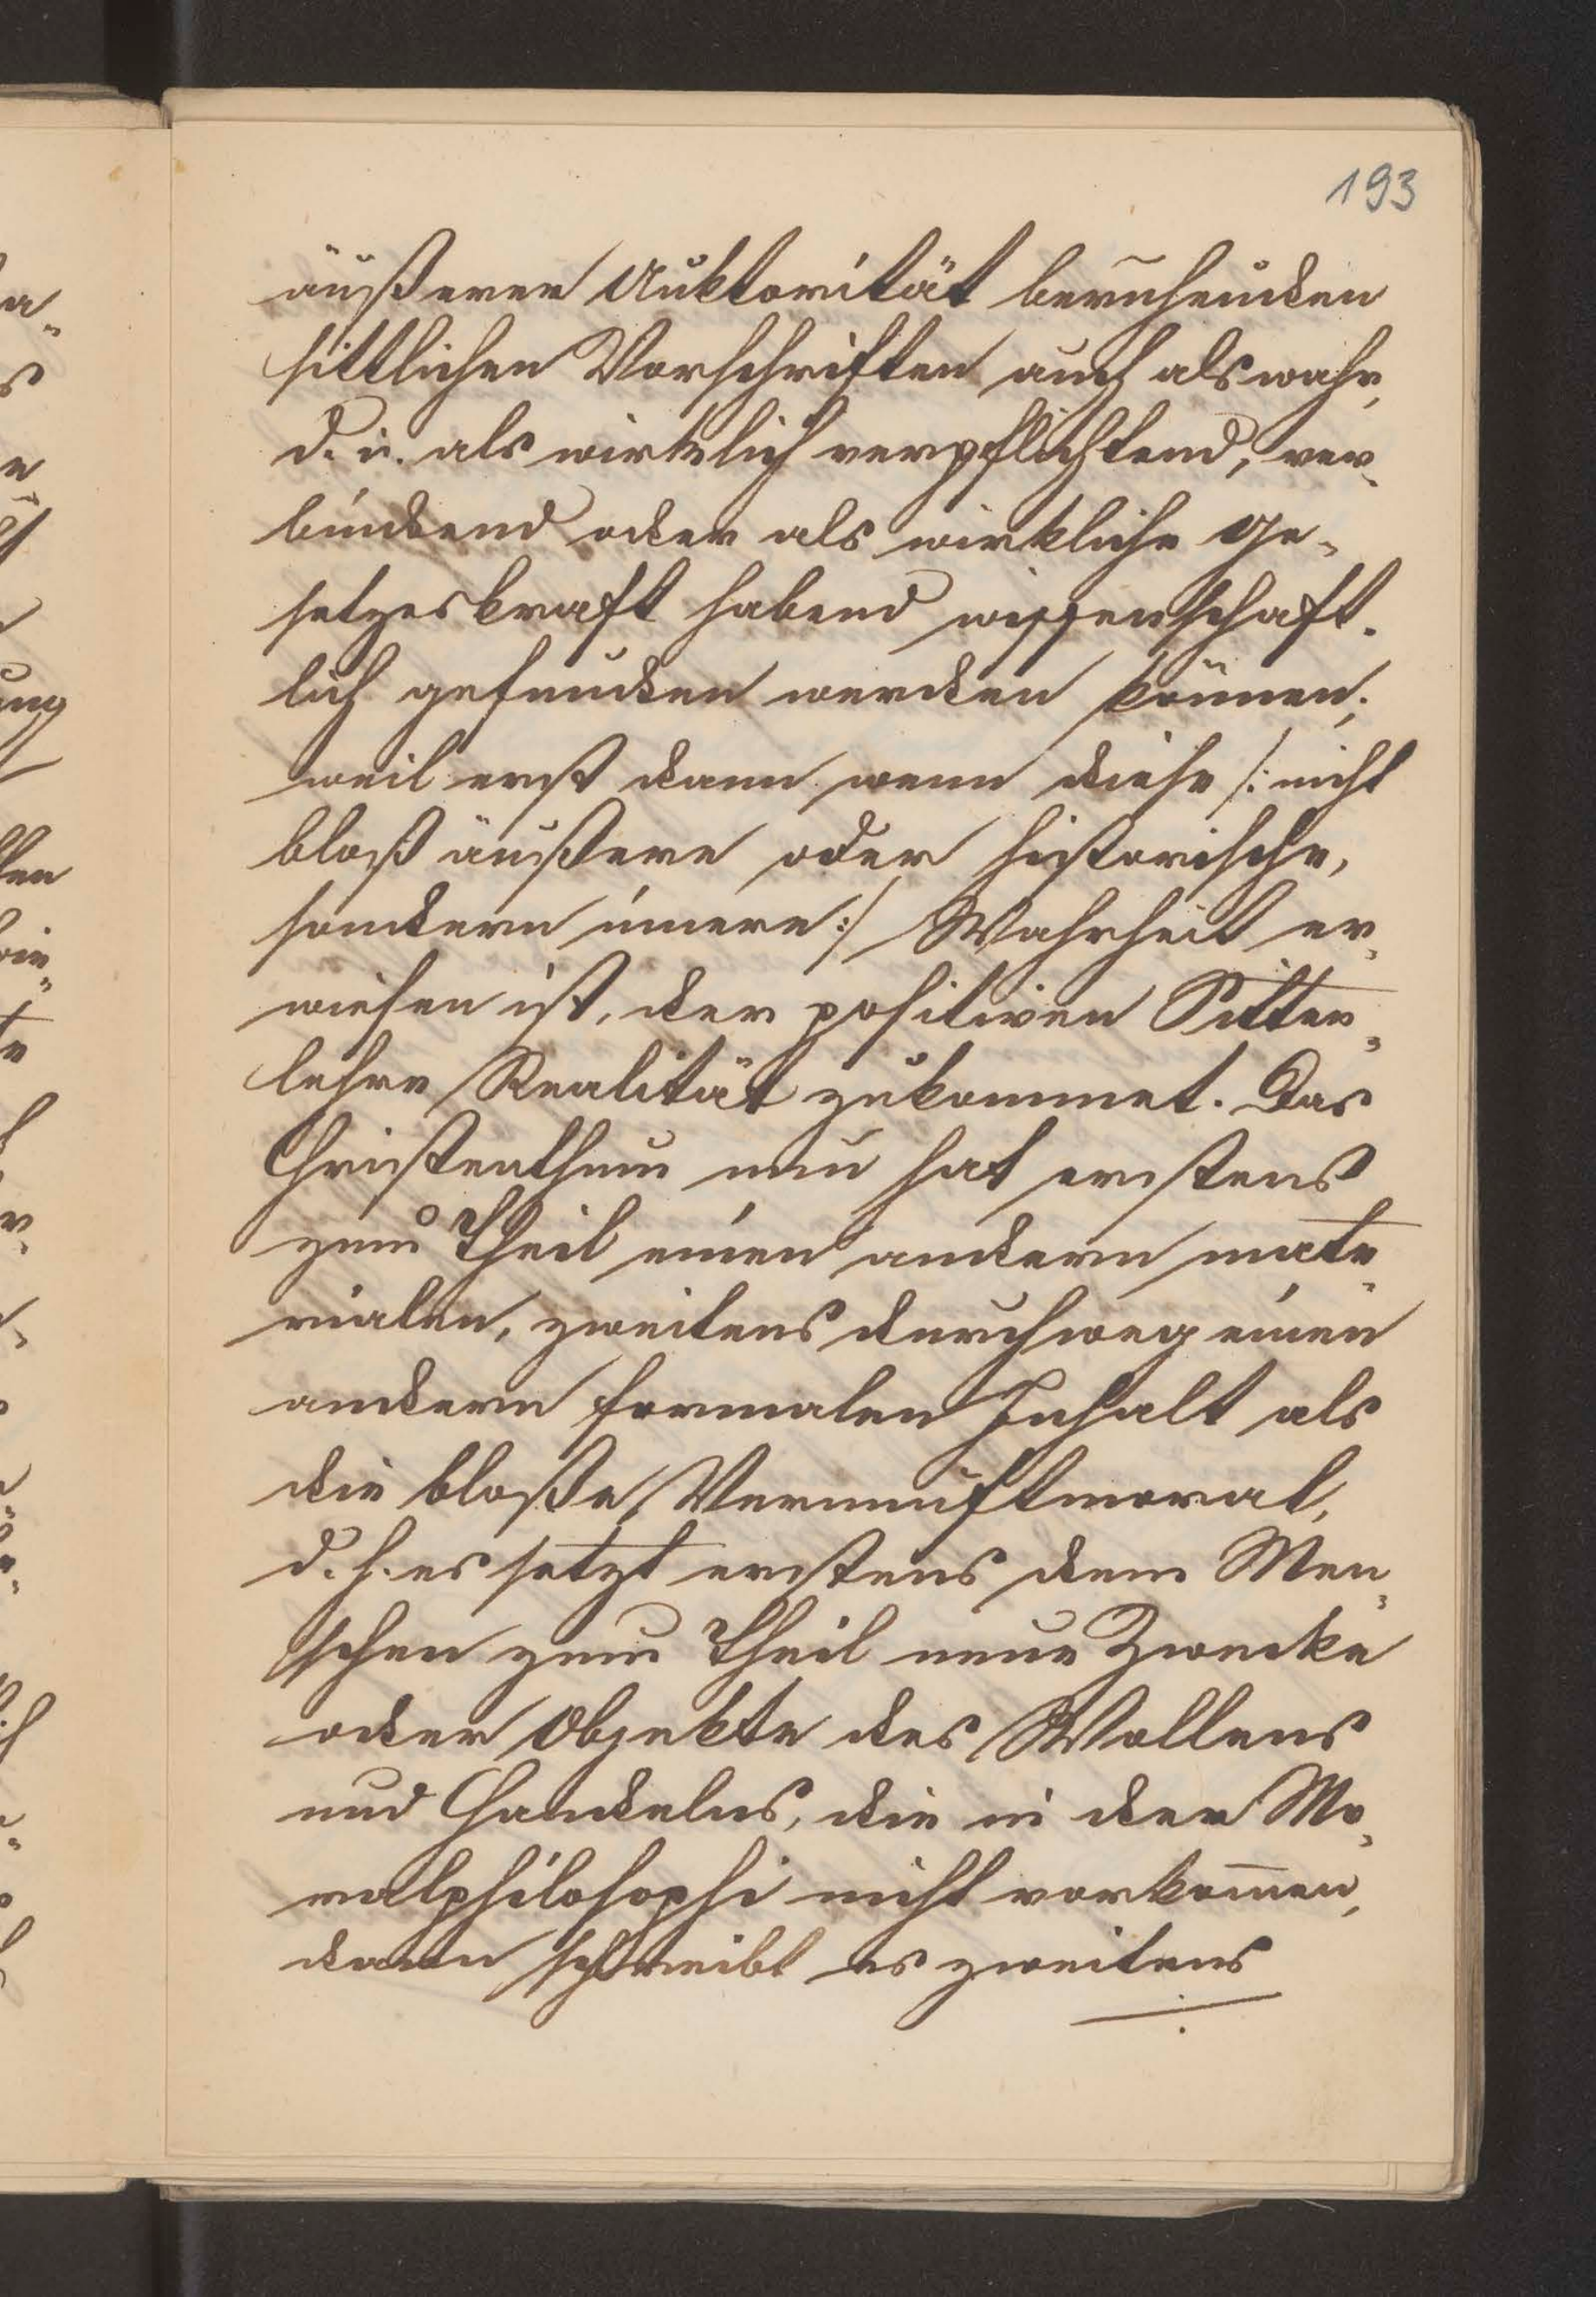 193
äußerer Auktorität beruhenden
sittlichen Vorschriften auch als wahr,
d. i. als wirklich verpflichtend, ver-
bindend oder als wirkliche Ge-
setzeskraft habend wissenschaft-
lich gefunden werden können;
weil erst dann wenn diese /: nicht
bloß äußere oder historische,
sondern innere :/ Wahrheit er-
wiesen ist, der positiven Sitten-
lehre Realität zukommet. Das
Christenthum nun hat erstens
zum Theil einen andern mate-
rialen, zweitens durchweg einen
andern formalen Inhalt als
die bloße Vernunftmoral,
d. h. es setzt erstens dem Men-
schen zum Theil neue Zwecke
oder Objekte des Wollens
und Handelns, die in der Mo-
ralphilosophi nicht vorkom̄en,
dann schreibt es zweitens